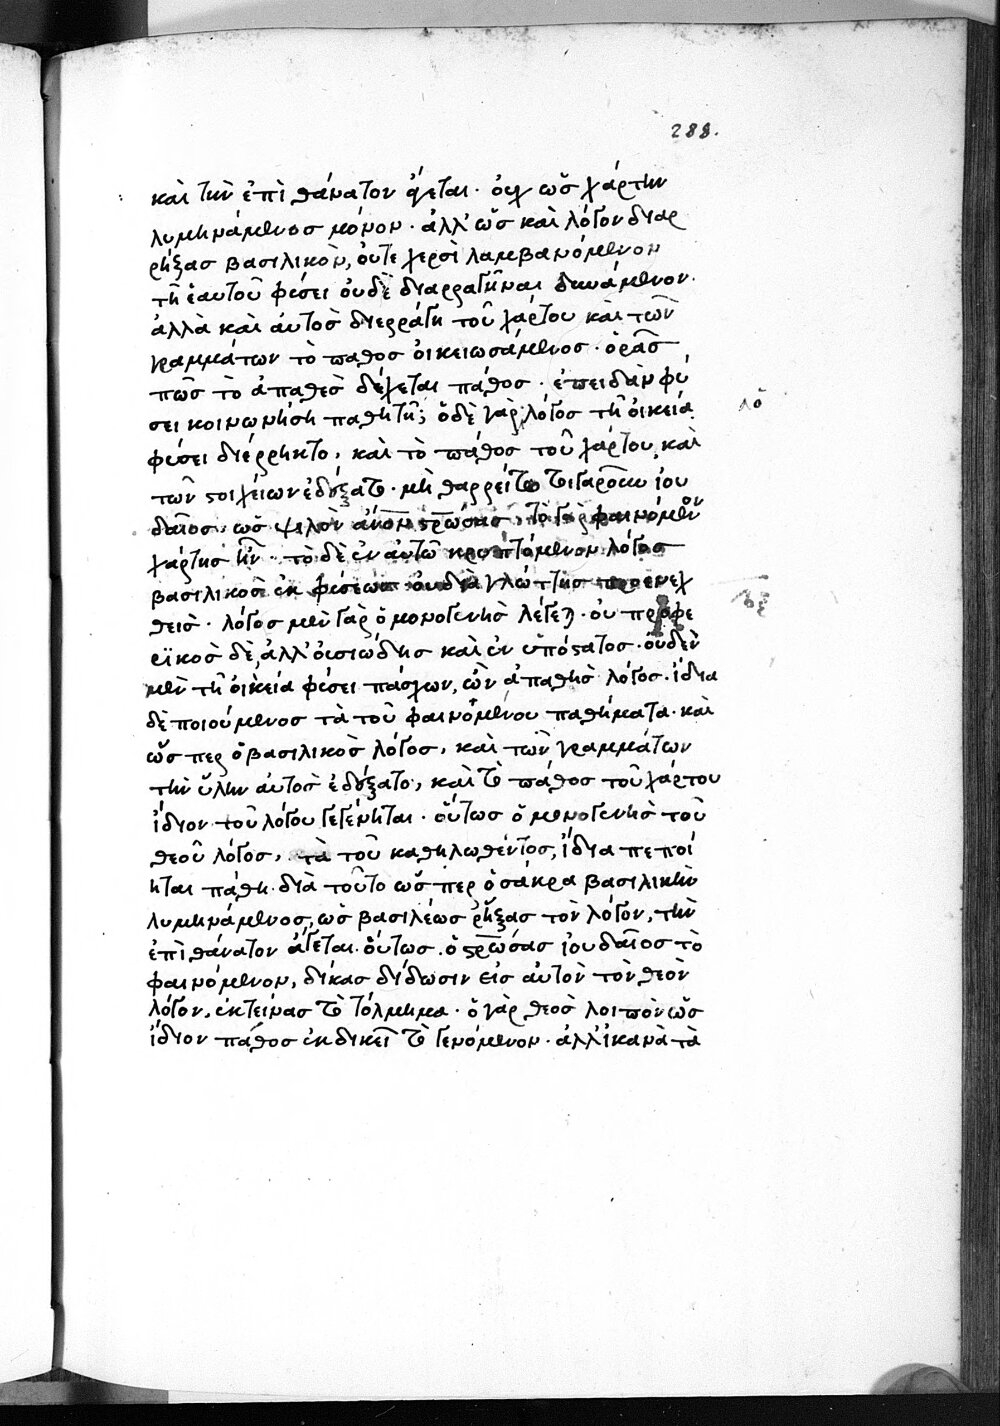 288.
καὶ τὴν ἐπὶ θάνατον ἄγεται· οὐχ ὡς χάρτην
λυμηνάμενος μόνον· ἀλλ' ὡς καὶ λόγον διαρ
ρήξας βασιλικὸν, οὔτε χερσὶ λαμβανόμενον
τῇ ἑαυτοῦ φύσει οὐδὲ διαρραγῆναι δυνάμενον·
ἀλλὰ καὶ αὐτὸς διερράγη τοῦ χάρτου καὶ τῶν
γραμμάτων τὸ παθος οἰκειωσάμενος· ὁρᾶς
πῶς τὸ ἀπαθὲς δέχεται πάθος· ἐπειδὰν φύ
σει κοινωνήσῃ παθητῇ; ὁ δὲ γὰρ λόγος τῇ οἰκείᾳ
φύσει διέρρηκτο, καὶ τὸ πάθος τοῦ χάρτου, καὶ
τῶν στοιχείων ἐδέξατο· μὴ θαρρείτω τιγαροῦν ἰου
δαῖος, ὡς ψιλὸν ἄνον σρώσας· τὸ γὰρ φαινόμενον
χάρτης ἦν· τὸ δὲ ἐν αὐτῷ κρυπτόμενον λόγος
βασιλικὸς ἐκ φύσεως οὐ διὰ γλώττης προενεχ
θείς· λόγος μὲν γὰρ ὁ μονογενὴς λέγεται· οὐ προφο
ρικὸς δὲ, ἀλλ' οὐσιώδης καὶ ἐν ὑπόστατος· οὐδὲν
μὲν τῇ οἰκεία φύσει πάσχων, ὢν ἀπαθὴς λόγος· ἴδια
δὲ ποιούμενος τὰ τοῦ φαινομένου παθήματα· καὶ
ὥς περ ὁ βασιλικὸς λόγος, καὶ τῶν γραμμάτων
τὴν ὕλην αὐτὸς ἐδέξατο, καὶ τὸ πάθος τοῦ χάρτου
ἴδιον τοῦ λόγου γεγένηται· οὕτως ὁ μονογενὴς τοῦ
θεοῦ λόγος, τὰ τοῦ καθηλωθέντος, ἴδια πεποί
ηται πάθη· διὰ τοῦτο ὥς περ ὁ σάκρα βασιλικὴν
λυμηνάμενος, ὡς βασιλέως ῥήξας τὸν λόγον, τὴν
ἐπὶ θάνατον ἄγεται· οὕτως ὁ σρώσας ἰουδαῖος τὸ
φαινόμενον, δίκας δίδωσιν εἰς αὐτὸν τὸν θεὸν
λόγον, ἐκτείνας τὸ τόλμημα· ὁ γὰρ θεὸς λοιπὸν ὡς
ἴδιον πάθος ἐκδικεῖ τὸ γενόμενον· ἀλλ' ἱκανὰ τὰ